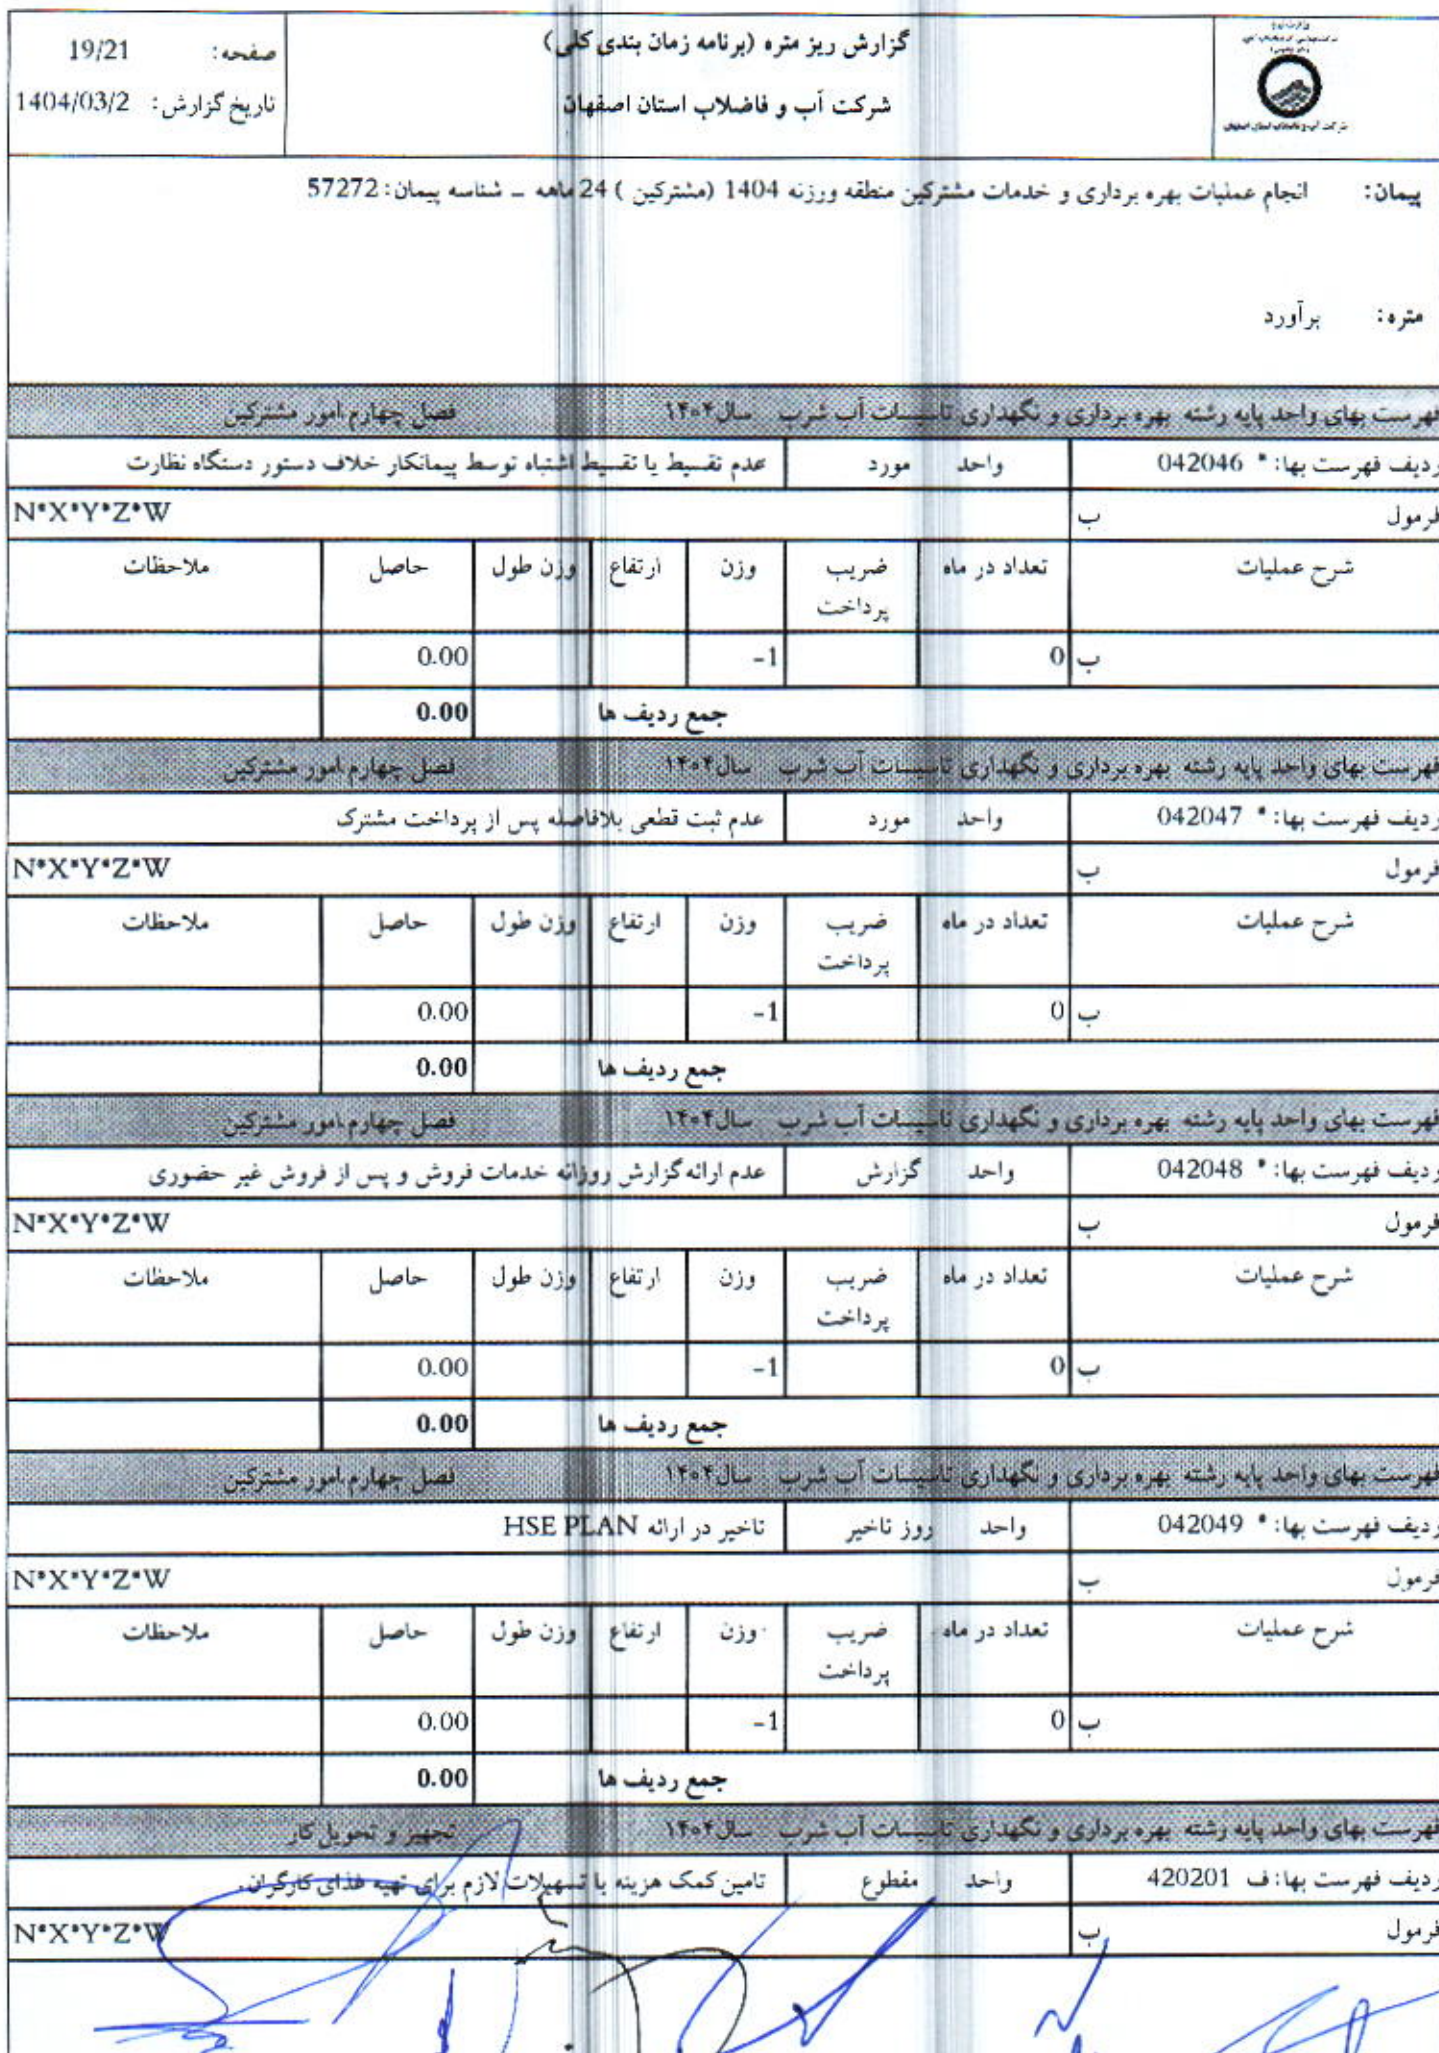 گزارش ریز متره (برنامه زمان بندی کلی)
صفحه: 19/21
شرکت آب و فاضلاب استان اصفهان
تاریخ گزارش: 1404/03/2
شرکت آب و فاضلاب استان اصفهان
پیمان: انجام عملیات بهره برداری و خدمات مشترکین منطقه ورزنه 1404 (مشترکین ) 24 ماهه - شناسه پیمان: 57272
متره: برآورد
فهرست بهای واحد پایه رشته بهره برداری و نگهداری تاسیسات آب شرب سال۱۴۰۴ فصل چهارم.امور مشترکین
ردیف فهرست بها: * 042046 واحد مورد عدم تقسیط یا تقسیط اشتباه توسط پیمانکار خلاف دستور دستگاه نظارت
فرمول ب N*X*Y*Z*W
شرح عملیات تعداد در ماه ضریب پرداخت وزن ارتفاع وزن طول حاصل ملاحظات
ب 0 -1 0.00
جمع ردیف ها 0.00
فهرست بهای واحد پایه رشته بهره برداری و نگهداری تاسیسات آب شرب سال۱۴۰۴ فصل چهارم.امور مشترکین
ردیف فهرست بها: * 042047 واحد مورد عدم ثبت قطعی بلافاصله پس از پرداخت مشترک
فرمول ب N*X*Y*Z*W
شرح عملیات تعداد در ماه ضریب پرداخت وزن ارتفاع وزن طول حاصل ملاحظات
ب 0 -1 0.00
جمع ردیف ها 0.00
فهرست بهای واحد پایه رشته بهره برداری و نگهداری تاسیسات آب شرب سال۱۴۰۴ فصل چهارم.امور مشترکین
ردیف فهرست بها: * 042048 واحد گزارش عدم ارائه گزارش روزانه خدمات فروش و پس از فروش غیر حضوری
فرمول ب N*X*Y*Z*W
شرح عملیات تعداد در ماه ضریب پرداخت وزن ارتفاع وزن طول حاصل ملاحظات
ب 0 -1 0.00
جمع ردیف ها 0.00
فهرست بهای واحد پایه رشته بهره برداری و نگهداری تاسیسات آب شرب سال۱۴۰۴ فصل چهارم.امور مشترکین
ردیف فهرست بها: * 042049 واحد روز تاخیر تاخیر در ارائه HSE PLAN
فرمول ب N*X*Y*Z*W
شرح عملیات تعداد در ماه ضریب پرداخت وزن ارتفاع وزن طول حاصل ملاحظات
ب 0 -1 0.00
جمع ردیف ها 0.00
فهرست بهای واحد پایه رشته بهره برداری و نگهداری تاسیسات آب شرب سال۱۴۰۴ تجهیز و تحویل کار
ردیف فهرست بها: ف 420201 واحد مقطوع تامین کمک هزینه یا تسهیلات لازم برای تهیه غذای کارگران.
فرمول ب N*X*Y*Z*W